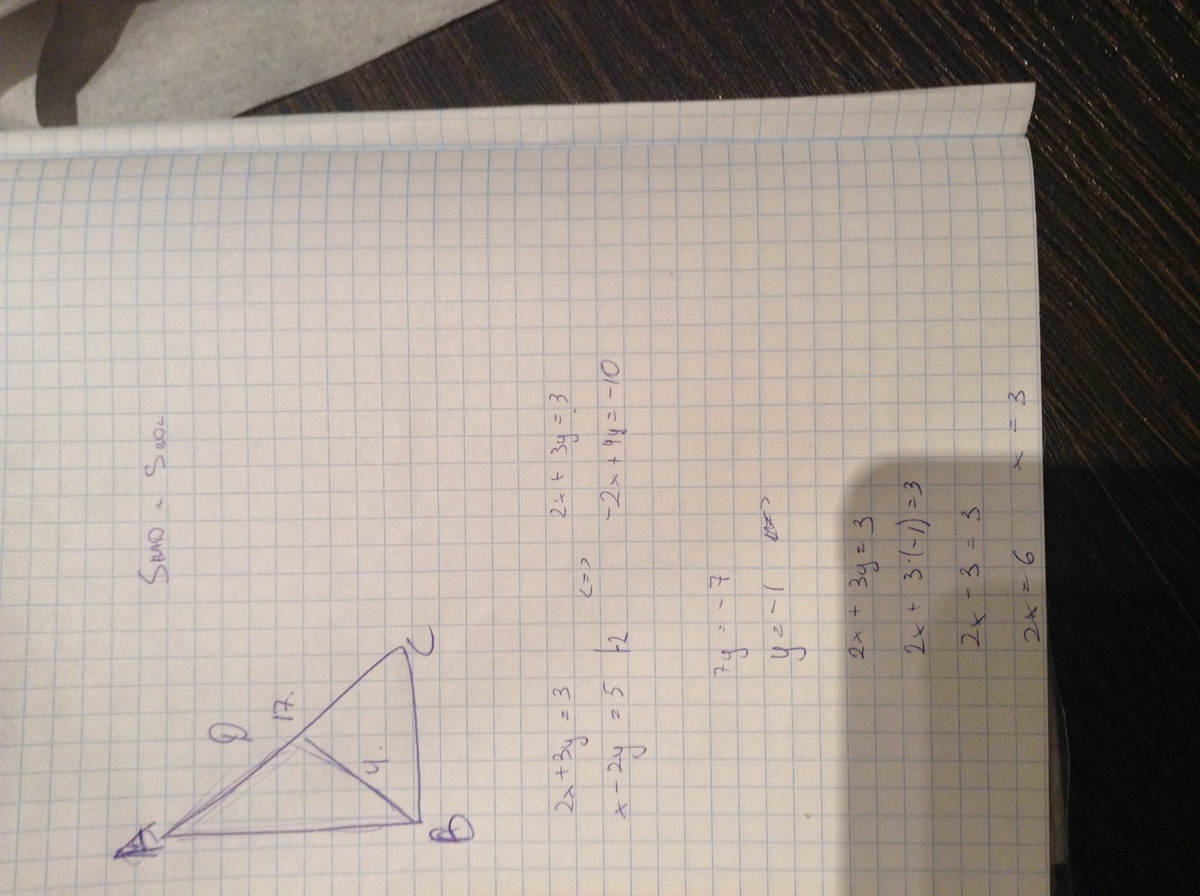 A
D
17.
4.
B
C
S BAD и S BDC
2x + 3y = 3 <=> 2x + 3y = 3
x - 2y = 5 |·2 -2x + 4y = -10
7y = -7
y = -1
2x + 3y = 3
2x + 3·(-1) = 3
2x - 3 = 3
2x = 6 x = 3